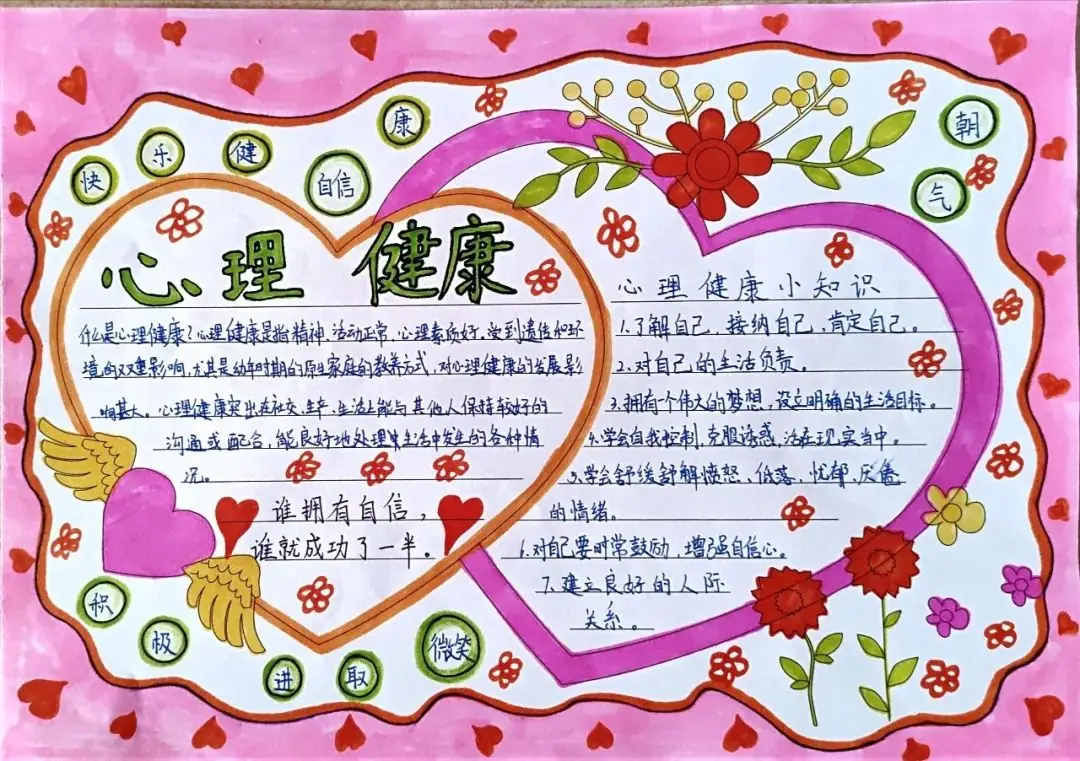 快
乐
健
康
自信
朝
气
心理 健康
什么是心理健康?心理健康是指精神、活动正常、心理素质好。受到遗传和环
境的双重影响,尤其是幼年时期的原生家庭的教养方式,对心理健康的发展影
响甚大。心理健康突出在社交、生产、生活上能与其他人保持较好的
沟通或配合,能良好地处理生活中发生的各种情
况。
谁拥有自信,
谁就成功了一半。
心理健康小知识
1.了解自己、接纳自己,肯定自己。
2.对自己的生活负责。
3.拥有个伟大的梦想,设立明确的生活目标。
4.学会自我控制,克服诱惑,活在现实当中。
5.学会舒缓舒解愤怒、低落、忧郁、厌倦
的情绪。
6.对自己要时常鼓励,增强自信心。
7.建立良好的人际
关系。
积
极
进
取
微笑